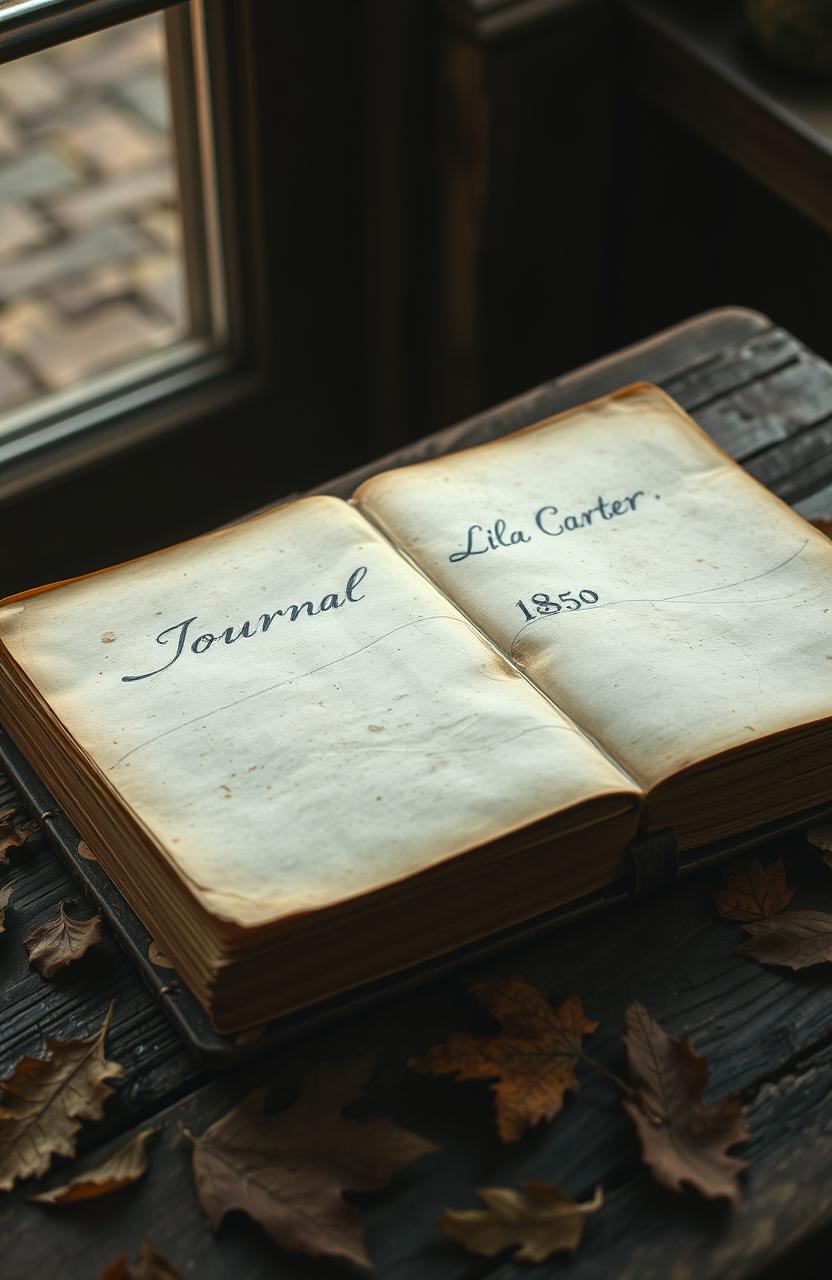 Journal
Lila Carter.
1850